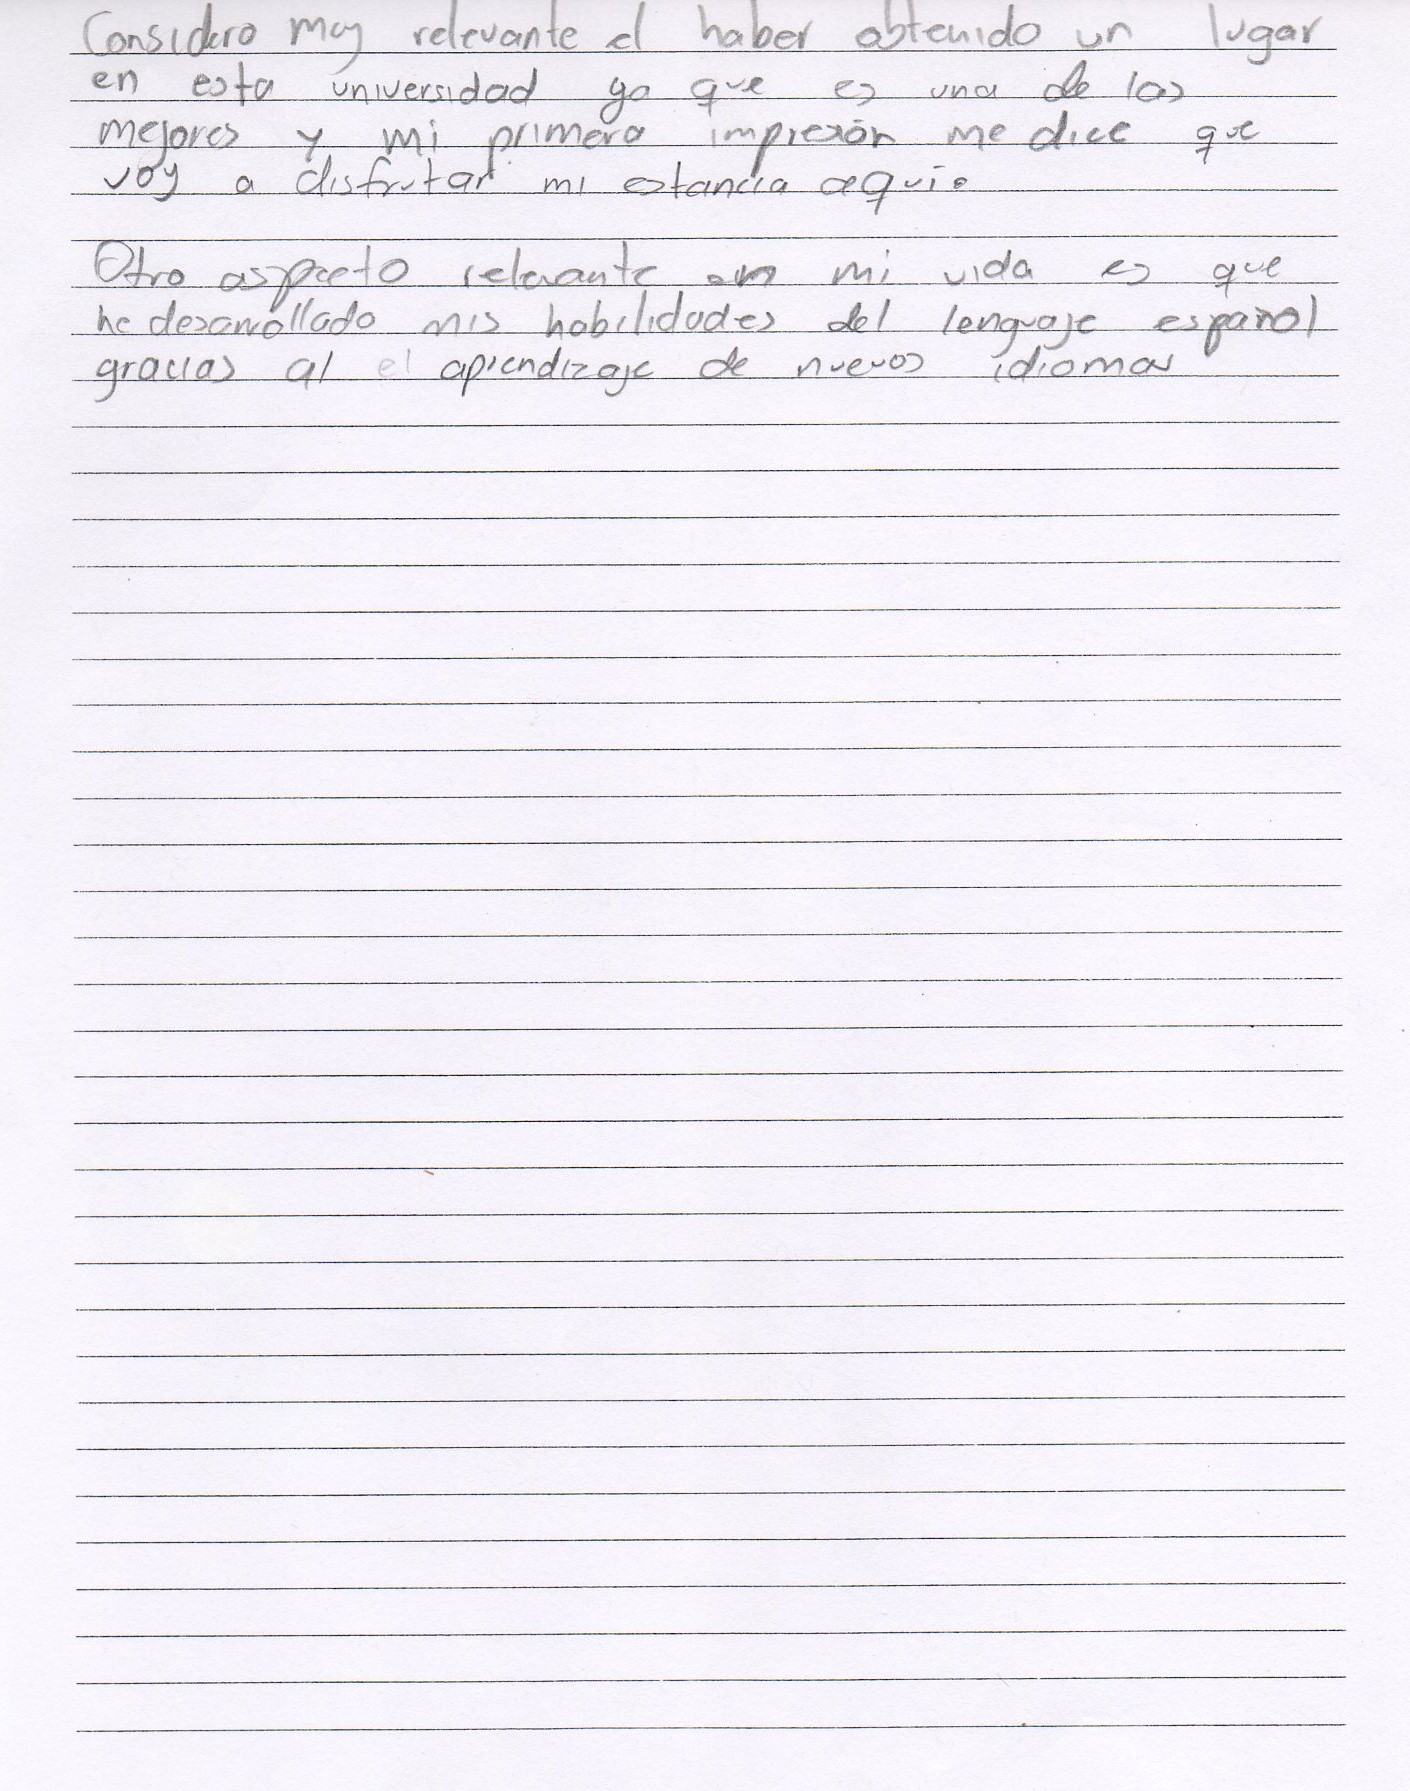 Considero muy relevante el haber obtenido un lugar
en esta universidad ya que es una de las
mejores y mi primera impresión me dice que
voy a disfrutar mi estancia aquí.
Otro aspecto relevante en mi vida es que
he desarrollado mis habilidades del lenguaje español
gracias al el aprendizaje de nuevos idiomas